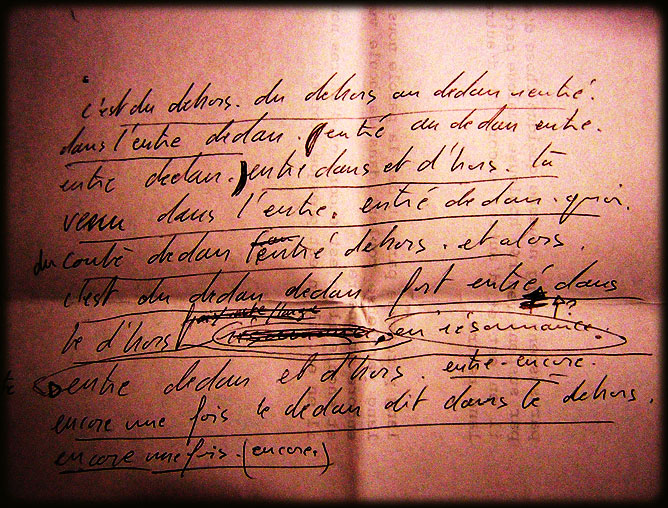 c'est du dehors. du dehors au dedan rentré.
dans l'entre dedan. entré au dedan entre.
entre dedan. entre dans et d'hors. tu
venu dans l'entre. entré dedan. quoi.
du conté dedan entré dehors. et alors.
c'est du dedan dedan fort entré dans
le d'hors en résonnance.
entre dedan et d'hors. entre-encore.
encore une fois le dedan dit dans le dehors.
encore une fois. (encore.)